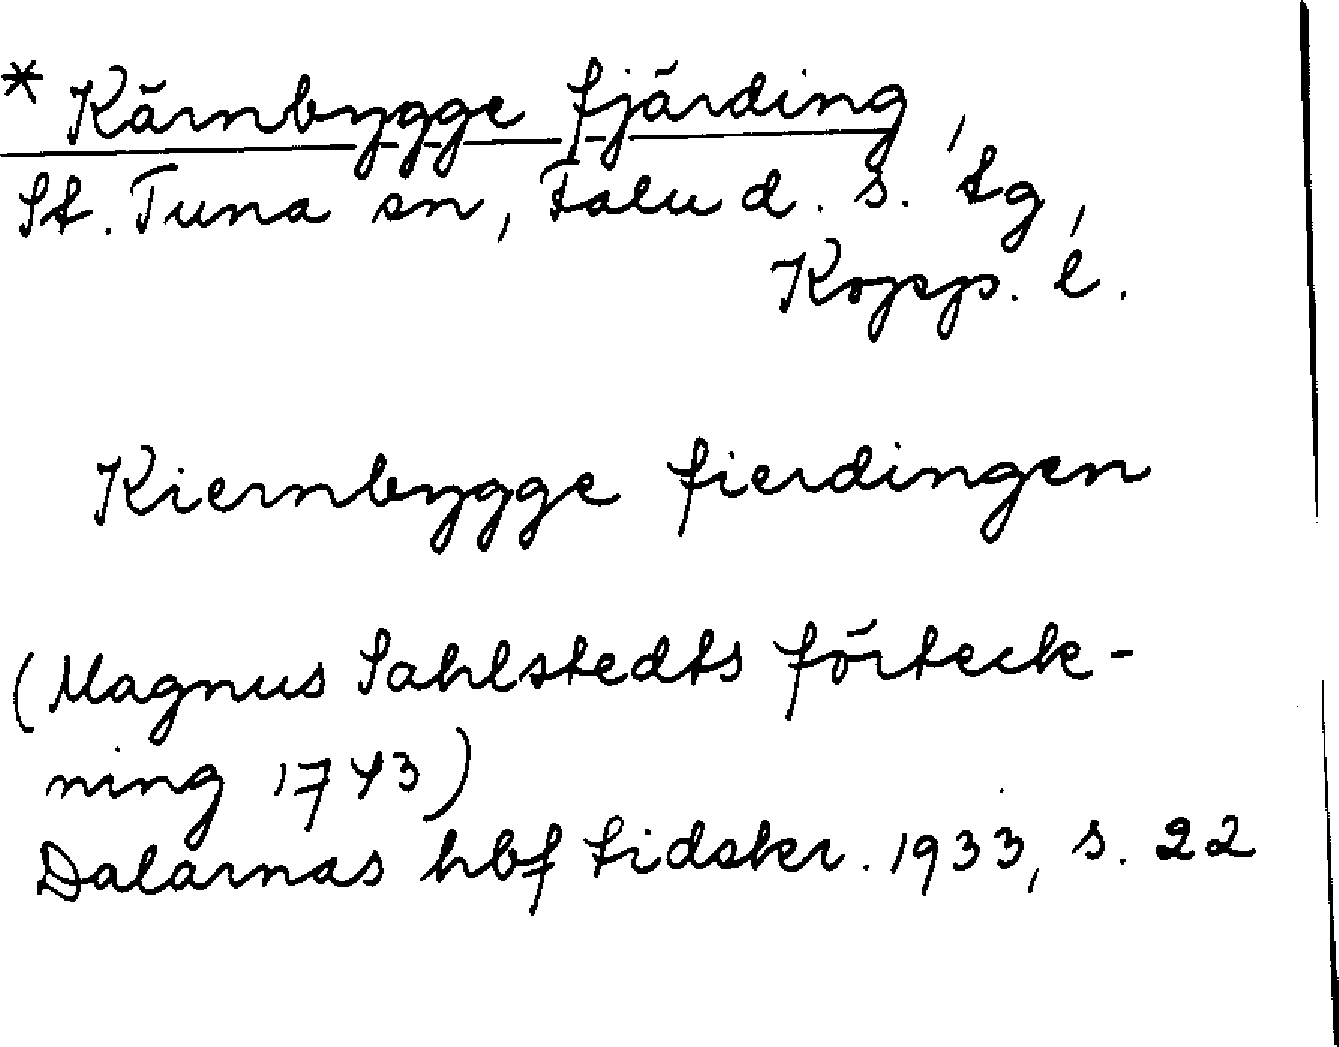 * Kärnbygge fjärding,
St. Tuna sn, Falu d. s. tg,
Kopp. l.
Kiernbygge fierdingen
(Magnus Sahlstedts förteck-
ning 1743)
Dalarnas hbf tidskr. 1933, s. 22